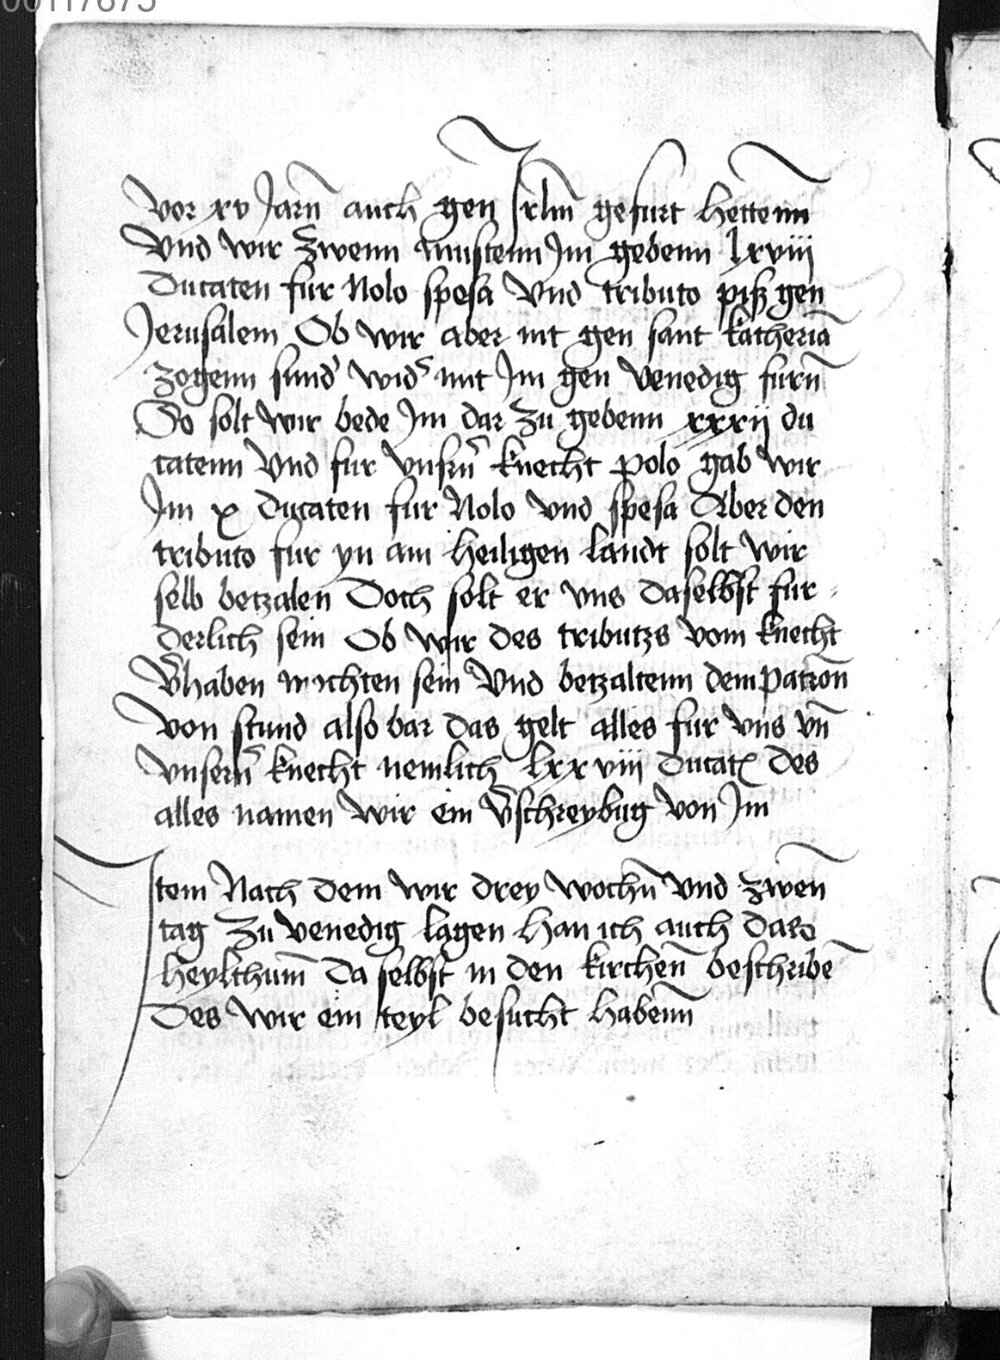 00117675
Vor xv Jarn̄ auch gen Jrlm̄ gefurt hettenn
Vnd wir zwenn mustenn Jm gebenn lxviii
Ducaten fur Nolo spesa Vnd tributo piß gen
Jerusalem Ob wir aber nit gen sant katherīa
zogenn sund' wid' mit Jm gen Venedig furn̄
So solt wir bede Jm dar zu gebenn xxxij du
catenn Vnd fur vnsrn̄ knecht polo gab wir
Jm x Ducaten fur Nolo vnd spesa Aber den
tributo fur yn am heiligen landt solt wir
selb betzalen Doch solt er vns daselbst fur-
derlich sein Ob wir des tributzs vom knecht
v̄haben mochten sein Vnd betzaltenn dem patron̄
Von stund also bar das gelt alles fur vns vn̄
vnsern̄ knecht nemlich lxxviij ducat des
alles namen wir ein v̄schreybūg von Jm
Jtem Nach dem wir drey wochn̄ vnd zwen̄
tag zu Venedig lagen han ich auch das
heylthum̄ da selbst in den kirchen̄ beschribē
Des wir ein teyl besucht habenn̄